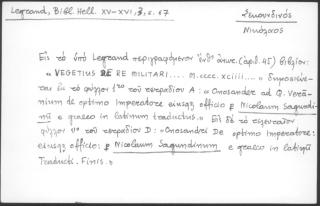 Legrand, Bibl. Hell. XV-XVI, 3, σ. 67
Σεκουνδινός
Νικόλαος
Εἰς τὸ ὑπὸ Legrand περιγραφόμενον ἐνθ' ἀνωτ. (ἀριθ. 45) βιβλίον:
« VEGETIUS DE RE MILITARI.... M.cccc.xciiii.... » δημοσιεύε-
ται ἐν τῷ φύλλῳ 1ʳᵒ τοῦ τετραδίου A: « Onosander ad Q. Verā-
nium de optimo Imperatore eiusqȝ officio p Nicolaum Sagundi-
nū e graeco in latinum traductus.» Εἰς δὲ τὸ τελευταῖον
φύλλον vᵒ τοῦ τετραδίου D: «Onosandri De optimo Imperatore:
eiusqȝ officio: p Nicolaum Sagundinum e graeco in latinū
Traducti. Finis.»